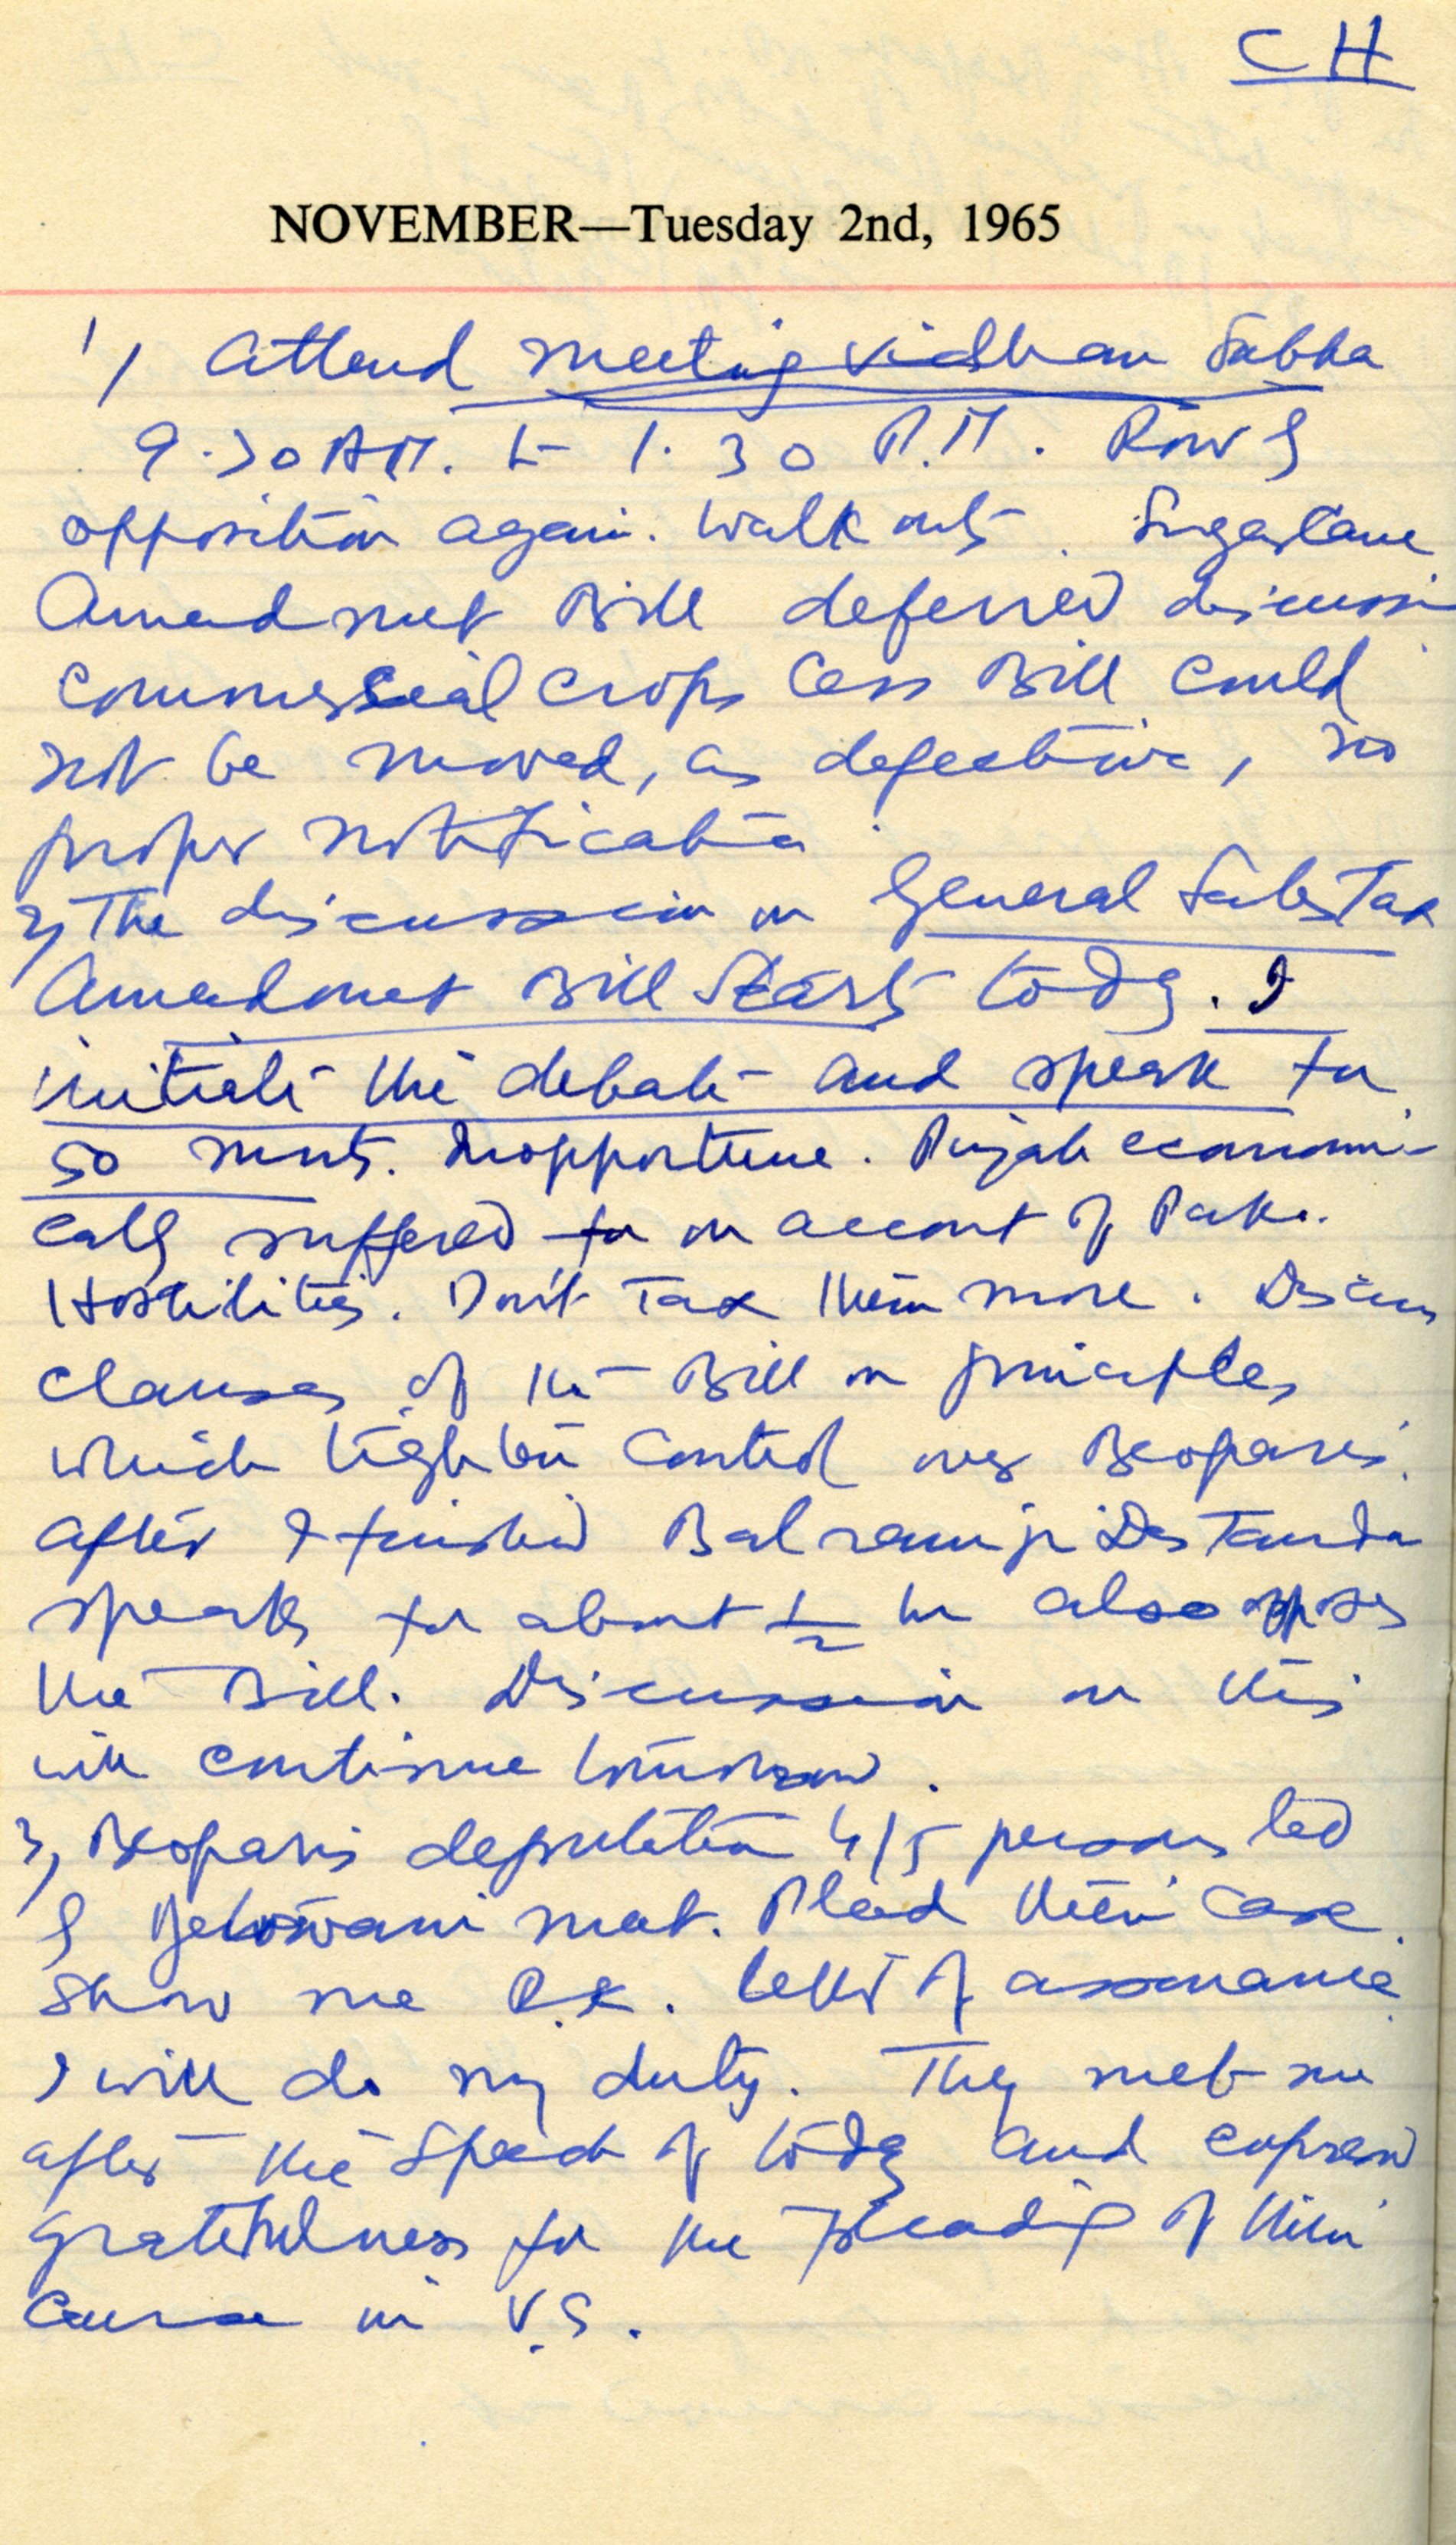 CH
NOVEMBER—Tuesday 2nd, 1965
1/ Attend meeting Vidhan Sabha
9.30 AM. to 1.30 P.M. Row by
opposition again. Walk outs. Sugar Cane
Amendment Bill deferred discussion
Commercial Crops Cess Bill could
not be moved, as defective, no
proper notification.
2/ The discussion on General Sales Tax
Amendment Bill starts today. I
initiate the debate and speak for
50 mnts. Inopportune. Punjab economi-
cally suffered for on account of Pak.
Hostilities. Don't Tax them more. Discuss
clauses of the Bill on principles
which tighten control over Beoparis.
After I finished Balramji Das Tandon
speaks for about ½ hr also opposes
the Bill. Discussion on this
will continue tomorrow.
3/ Beoparis deputation 4/5 persons led
by met. Plead their case.
Show me R.K. letter of assurance.
I will do my duty. They met me
after the Speech of today and express
gratefulness for the pleading of their
cause in V.S.